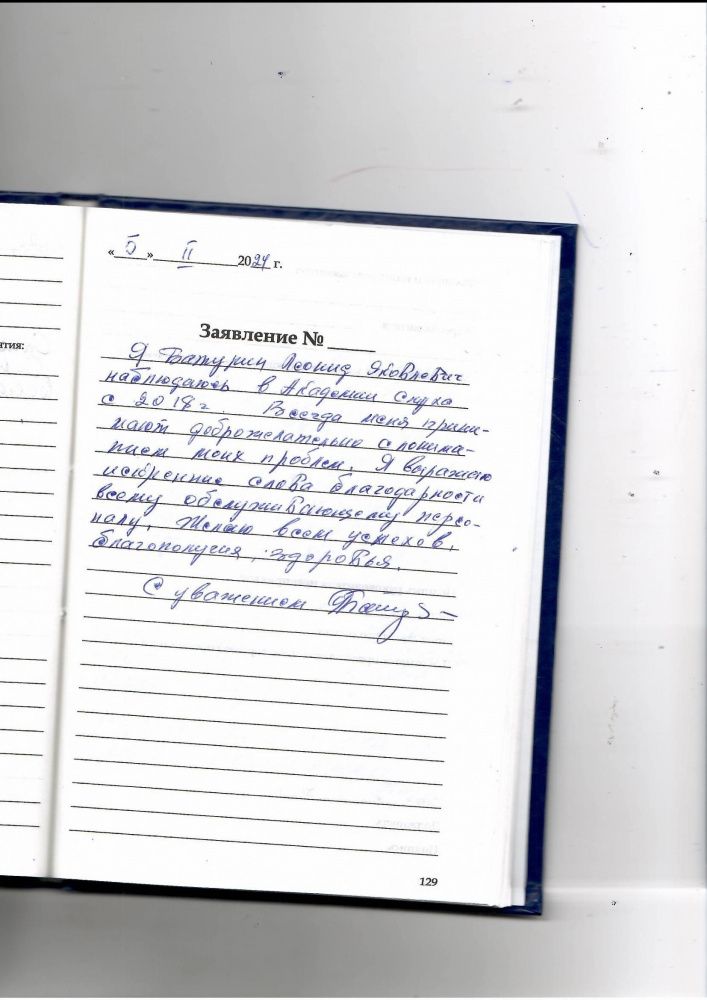 «5» II 2024 г.
ятия:
Заявление №
Я Батурин Леонид Яковлевич
наблюдаюсь в Академии Слуха
с 2018 г. Всегда меня прини-
мают доброжелательно с понима-
нием моих проблем. Я выражаю
искренние слова благодарности
всему обслуживающему персо-
налу. Желаю всем успехов,
благополучия, здоровья.
С уважением
129